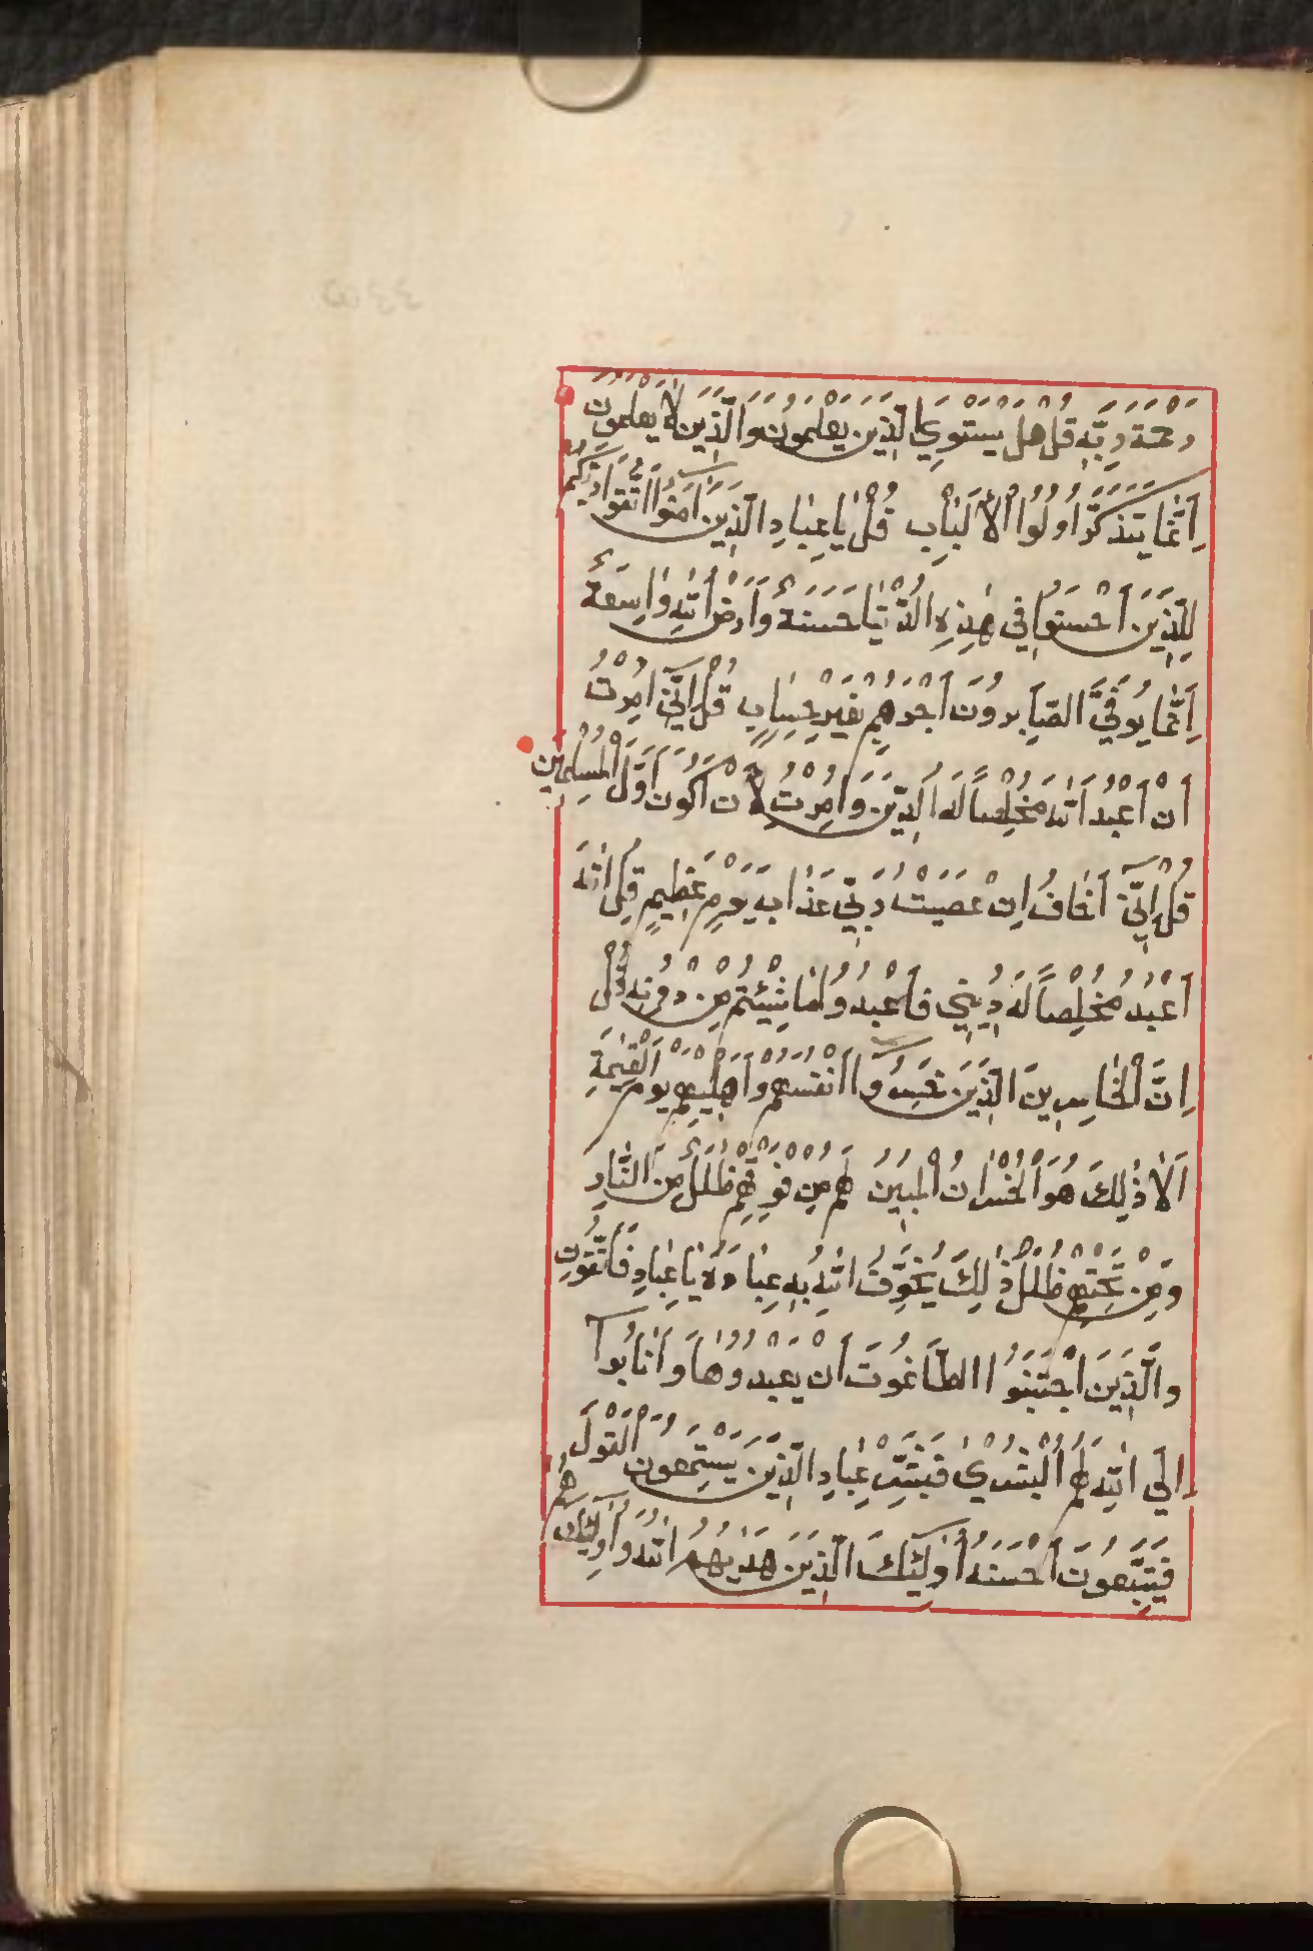 رَحْمَةَ رَبِّهِ قُلْ هَلْ يَسْتَوِي الَّذِينَ يَعْلَمُونَ وَالَّذِينَ لَا يَعْلَمُونَ
اِنَّمَا يَتَذَكَّرُ اُولُوا الْأَلْبَابِ قُلْ يَا عِبَادِ الَّذِينَ آمَنُوا اتَّقُوا رَبَّكُمْ
لِلَّذِينَ اَحْسَنُوا فِي هٰذِهِ الدُّنْيَا حَسَنَةٌ وَاَرْضُ اللهِ وَاسِعَةٌ
اِنَّمَا يُوَفَّي الصَّابِرُونَ اَجْرَهُمْ بِغَيْرِ حِسَابٍ قُلْ اِنِّي اُمِرْتُ
اَنْ اَعْبُدَ اللهَ مُخْلِصاً لَهُ الدِّينَ وَاُمِرْتُ لِاَنْ اَكُونَ اَوَّلَ الْمُسْلِمِينَ
قُلْ اِنِّي اَخَافُ اِنْ عَصَيْتُ رَبِّي عَذَابَ يَوْمٍ عَظِيمٍ قُلِ اللهَ
اَعْبُدُ مُخْلِصاً لَهُ دِينِي فَاعْبُدُوا مَا شِئْتُمْ مِنْ دُونِهِ قُلْ
اِنَّ الْخَاسِرِينَ الَّذِينَ خَسِرُوا اَنْفُسَهُمْ وَاَهْلِيهِمْ يَوْمَ الْقِيٰمَةِ
اَلَا ذٰلِكَ هُوَ الْخُسْرَانُ الْمُبِينُ لَهُمْ مِنْ فَوْقِهِمْ ظُلَلٌ مِنَ النَّارِ
وَمِنْ تَحْتِهِمْ ظُلَلٌ ذٰلِكَ يُخَوِّفُ اللهُ بِهِ عِبَادَهُ يَا عِبَادِ فَاتَّقُونِ
وَالَّذِينَ اجْتَنَبُوا الطَّاغُوتَ اَنْ يَعْبُدُوهَا وَاَنَابُوا
اِلَي اللهِ لَهُمُ الْبُشْرٰي فَبَشِّرْ عِبَادِ الَّذِينَ يَسْتَمِعُونَ الْقَوْلَ
فَيَتَّبِعُونَ اَحْسَنَهُ اُولٰئِكَ الَّذِينَ هَدٰيهُمُ اللهُ وَاُولٰئِكَ هُمْ